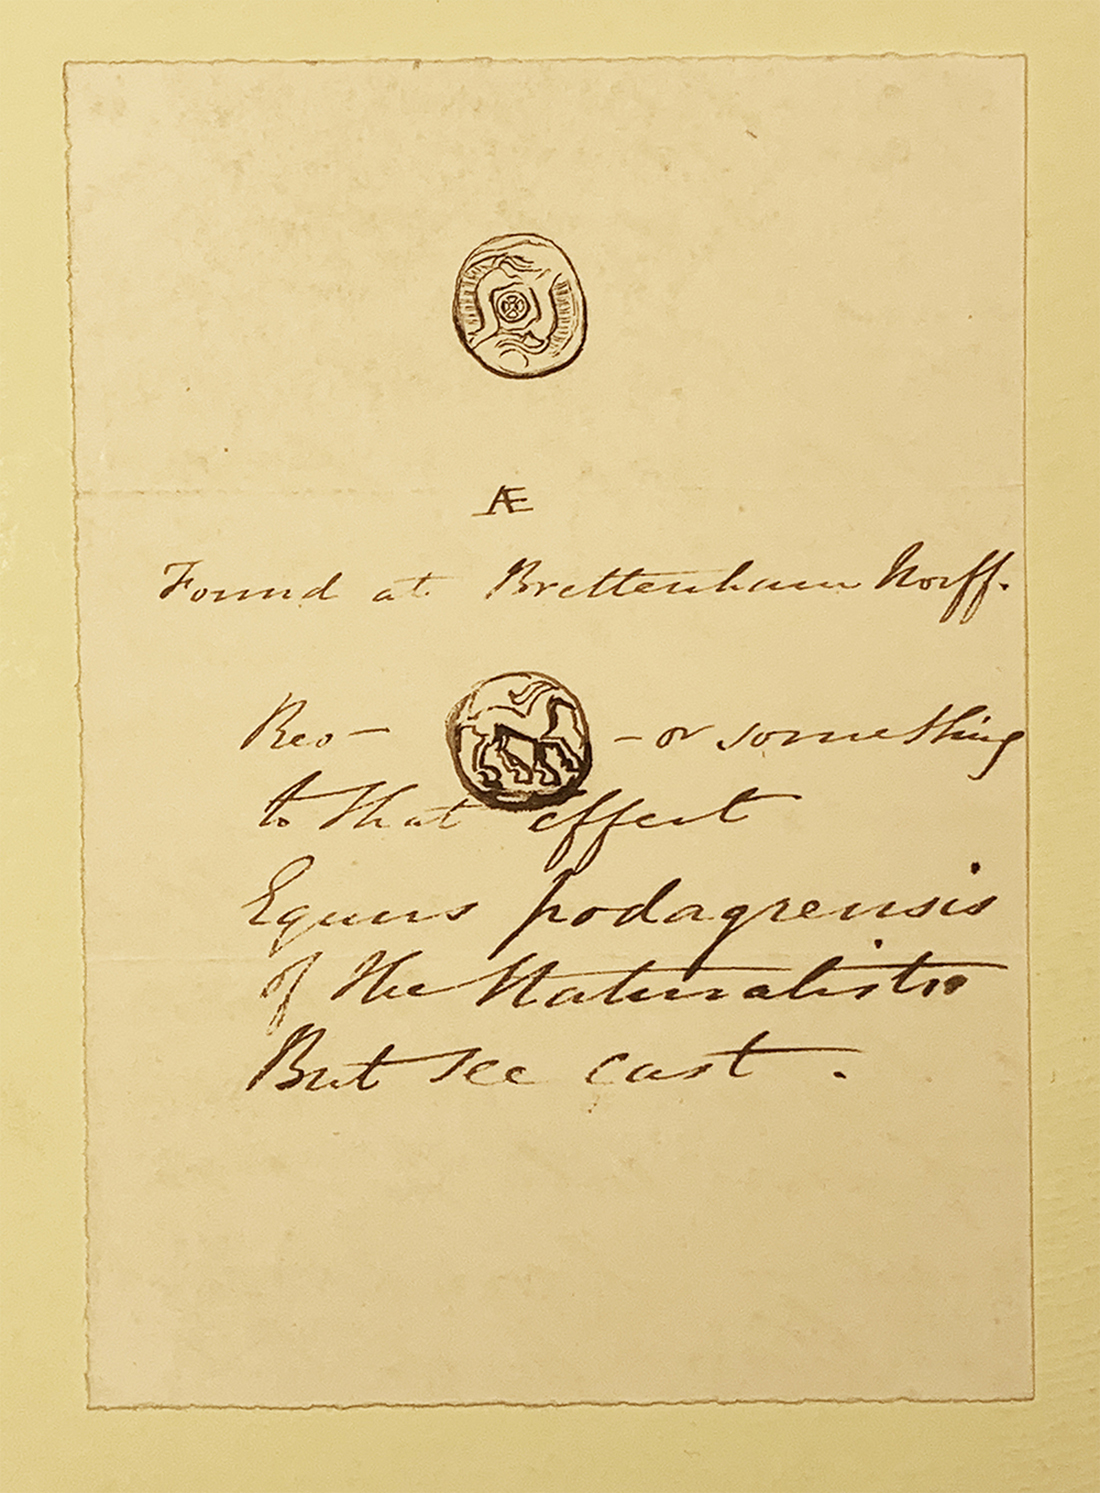 Æ
Found at Brettenham Norff.
Rev — — or something
to that effect
Equus podagrensis
of the Naturalists
But see cast .